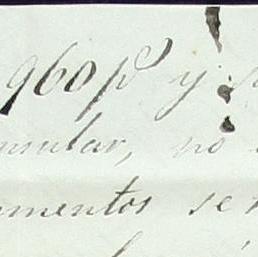 960p.s y
nsular, no
mentos se